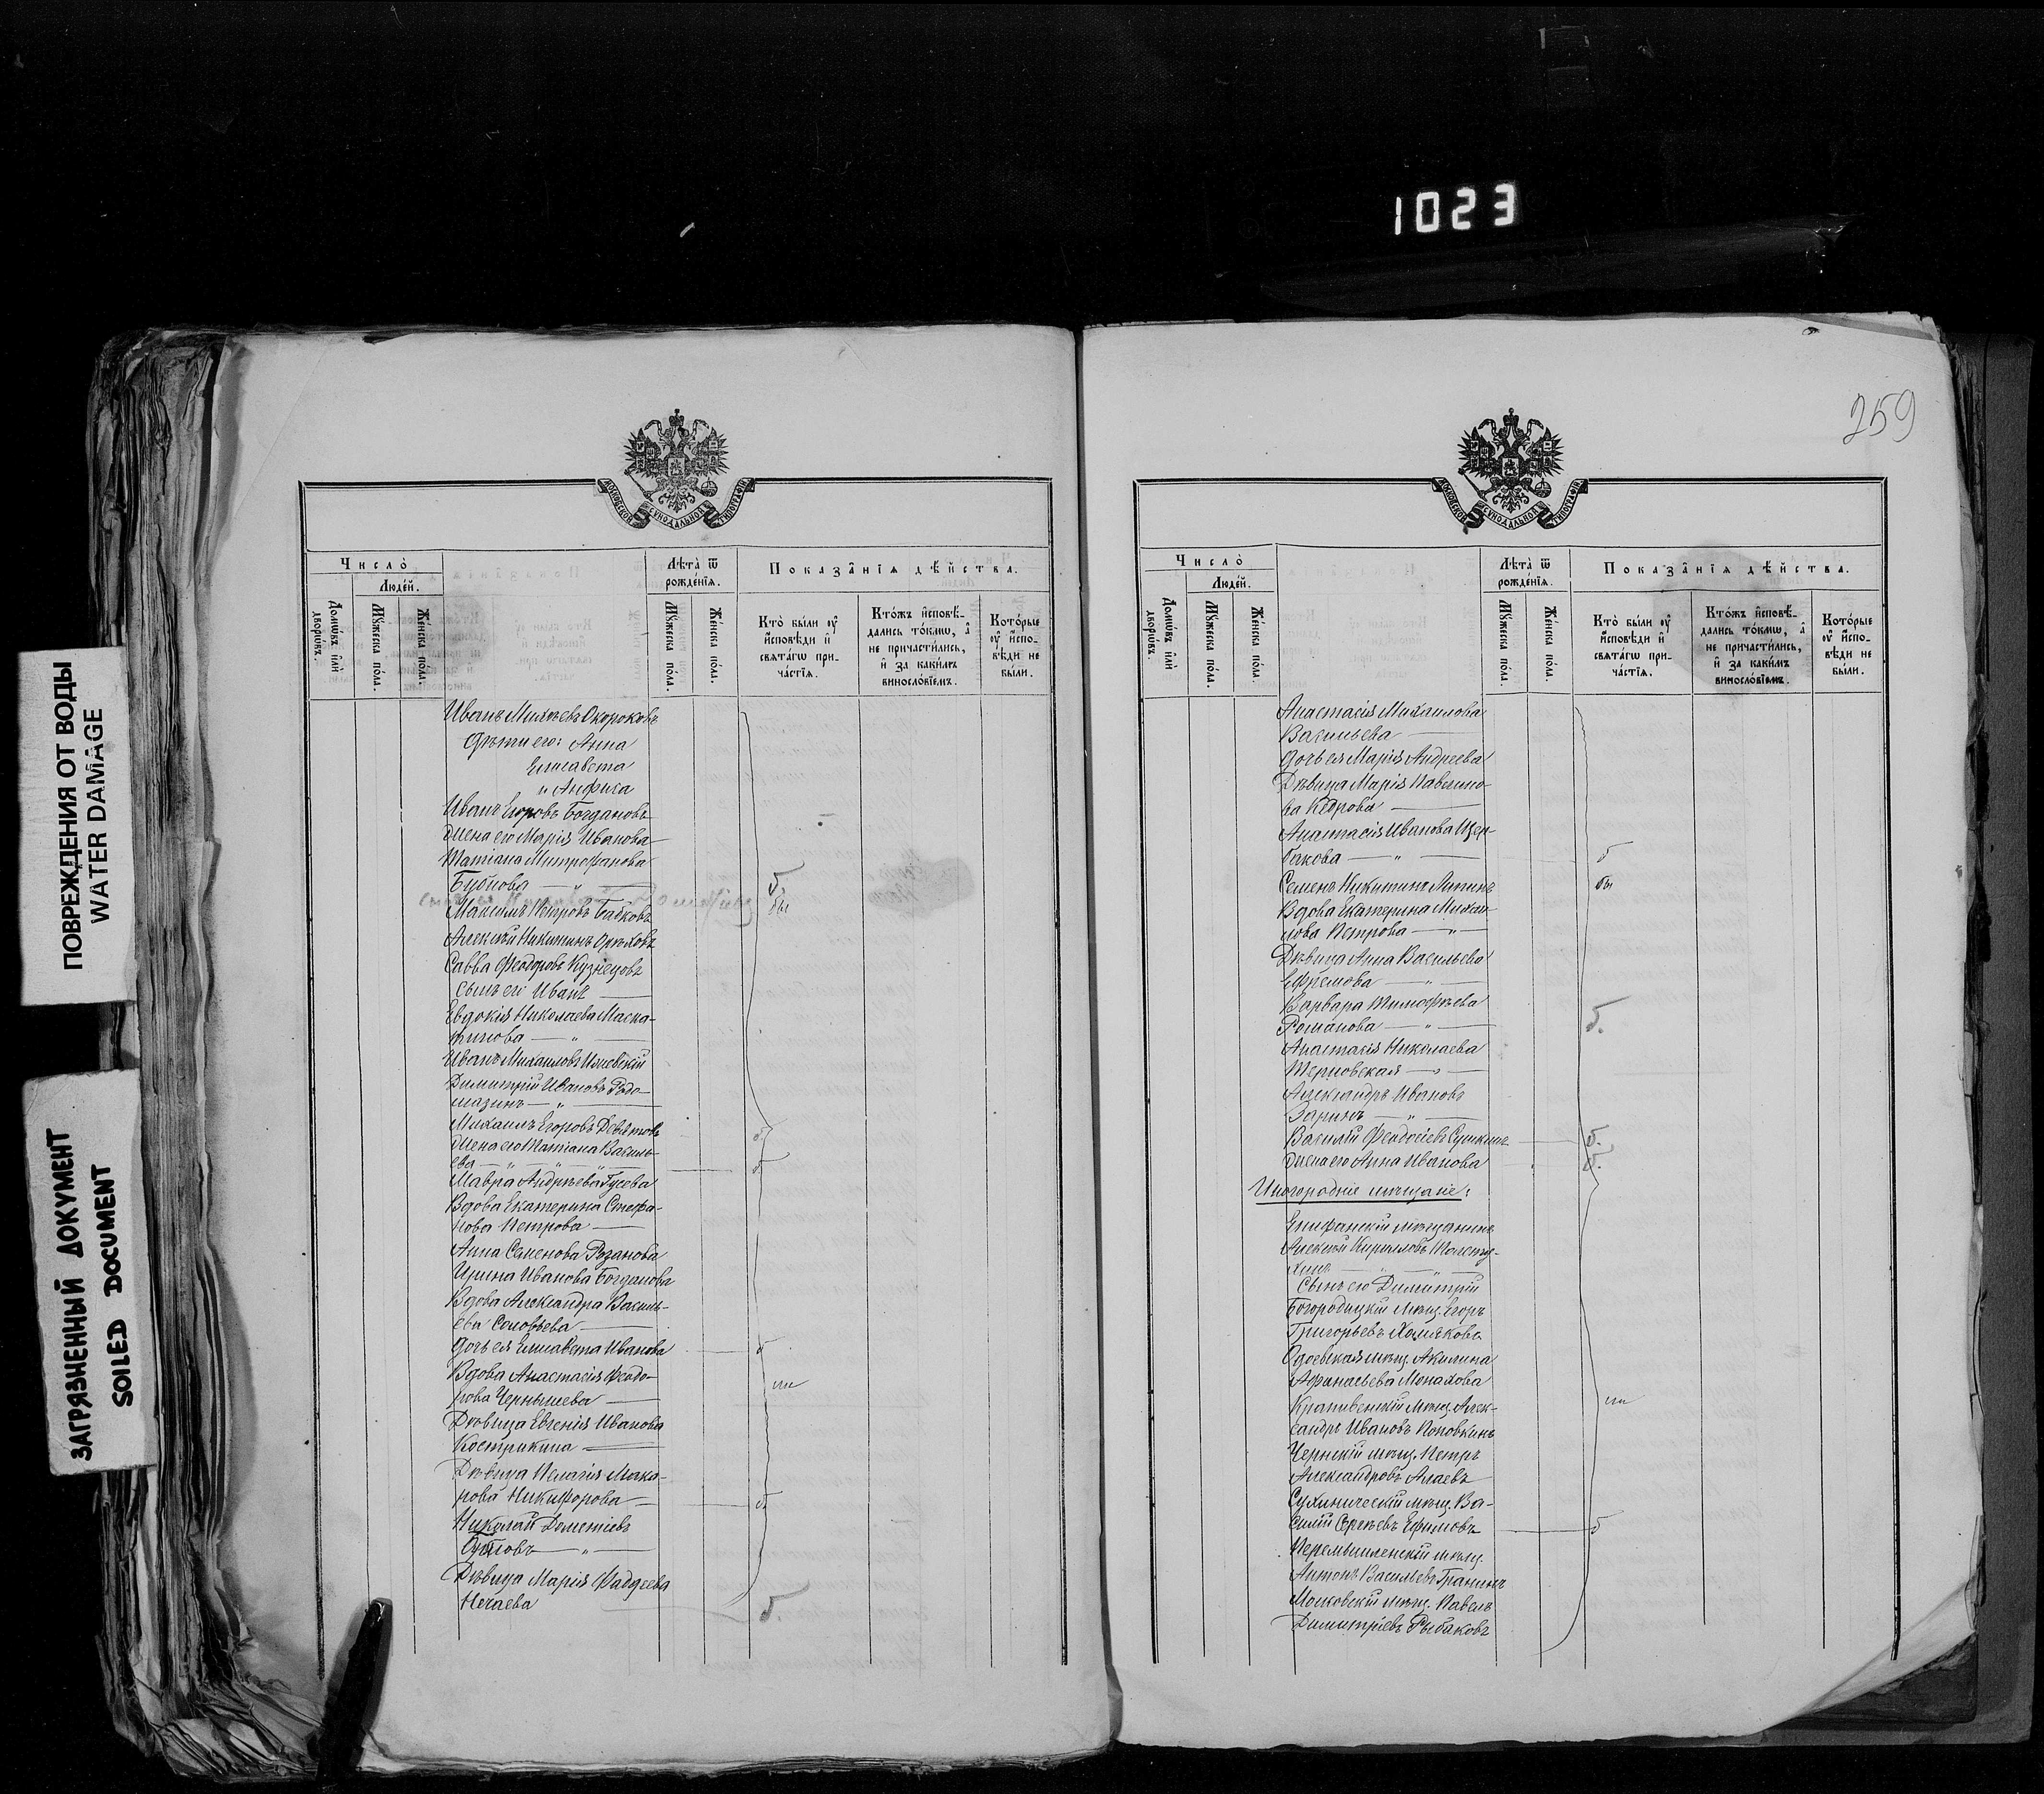 1023
ПОВРЕЖДЕНИЯ ОТ ВОДЫ
WATER DAMAGE
ЗАГРЯЗНЕННЫЙ ДОКУМЕНТ
SOILED DOCUMENT
МОСКОВСКОЙ СѴНОДАЛЬНОЙ ТИПОГРАФІИ
Число̀
Люде́й.
Домѡ́въ и҆лѝ дворѡ́въ.
Мꙋ́жеска по́ла.
Же́нска по́ла.
Лѣ́та ѿ рожде́нїѧ.
Мꙋ́жеска по́ла.
Же́нска по́ла.
Показа̑нїѧ дѣ́йства.
Кто̀ бы́ли ᲂу҆ и҆сповѣ́ди и҆ свѧта́гѡ при-ча́стїѧ.
Кто́жъ и҆сповѣ́-дались то́кмѡ, а҆ не причасти́лись, и҆ за каки́мъ винꙋсло́вїемъ.
Кото́рые ᲂу҆ и҆спо-вѣ́ди не бы́ли.
Иванъ Михѣевъ Окороковъ
Дѣти его: Анна
Елисавета
и Анфиса
Иванъ Егоровъ Богдановъ
Жена его Марія Иванова
Татіана Митрофанова
Максимъ Петровъ Байковъ
Алексѣй Никитинъ Орѣховъ
Савва Ѳеодоровъ Кузнецовъ
Сынъ его Иванъ
Евдокія Николаева
Иванъ Михаиловъ
Димитрій Ивановъ
Михаилъ Егоровъ Девятовъ
Жена его Татіана Василь-
ева
Мавра Андреева Гусева
Вдова Екатерина Стефа-
нова Петрова
Анна Семенова Рузанова
Ирина Иванова Богданова
Вдова Александра Василь-
ева Соловьева
Дочь ея Елисавета Иванова
Вдова Анастасія Ѳеодо-
рова Чернышева
Дѣвица Евгенія Иванова
Кострикина
Дѣвица Пелагія Мака-
рова Никифорова
Николай Дометіевъ
Дѣвица Марія Фаддеева
Нечаева
259
МОСКОВСКОЙ СѴНОДАЛЬНОЙ ТИПОГРАФІИ
Число̀
Люде́й.
Домѡ́въ и҆лѝ дворѡ́въ.
Мꙋ́жеска по́ла.
Же́нска по́ла.
Лѣ́та ѿ рожде́нїѧ.
Мꙋ́жеска по́ла.
Же́нска по́ла.
Показа̑нїѧ дѣ́йства.
Кто̀ бы́ли ᲂу҆ и҆сповѣ́ди и҆ свѧта́гѡ при-ча́стїѧ.
Кто́жъ и҆сповѣ́-дались то́кмѡ, а҆ не причасти́лись, и҆ за каки́мъ винꙋсло́вїемъ.
Кото́рые ᲂу҆ и҆спо-вѣ́ди не бы́ли.
Анастасія Михаилова
Васильева
Дочь ея Марія Андреева
Дѣвица Марія Павлино-
ва Кедрова
Анастасія Иванова Щер-
бакова
Семенъ Никитинъ Лапинъ
Вдова Екатерина Михаи-
лова Петрова
Дѣвица Анна Васильева
Ефремова
Варвара Тимоѳеева
Романова
Анастасія Николаева
Терновская
Александръ Ивановъ
Заринъ
Василій Ѳеодосіевъ Сушкинъ
Жена его Анна Иванова
Иногородніе мѣщане:
Епифанскій мѣщанинъ
Алексѣй Кирилловъ
Сынъ его Димитрій
Богородицкій мѣщ. Егоръ
Григорьевъ Хомяковъ
Одоевская мѣщ. Акилина
Афанасьева Монахова
Крапивенскій мѣщ. Алек-
сандръ Ивановъ Поповкинъ
Чернскій мѣщ. Петръ
Александровъ Алаевъ
Сухиническій мѣщ. Ва-
силій Сергѣевъ Ефимовъ
Перемышленскій мѣщ.
Антонъ Васильевъ Гранинъ
Московскій мѣщ. Павелъ
Димитріевъ Рыбаковъ